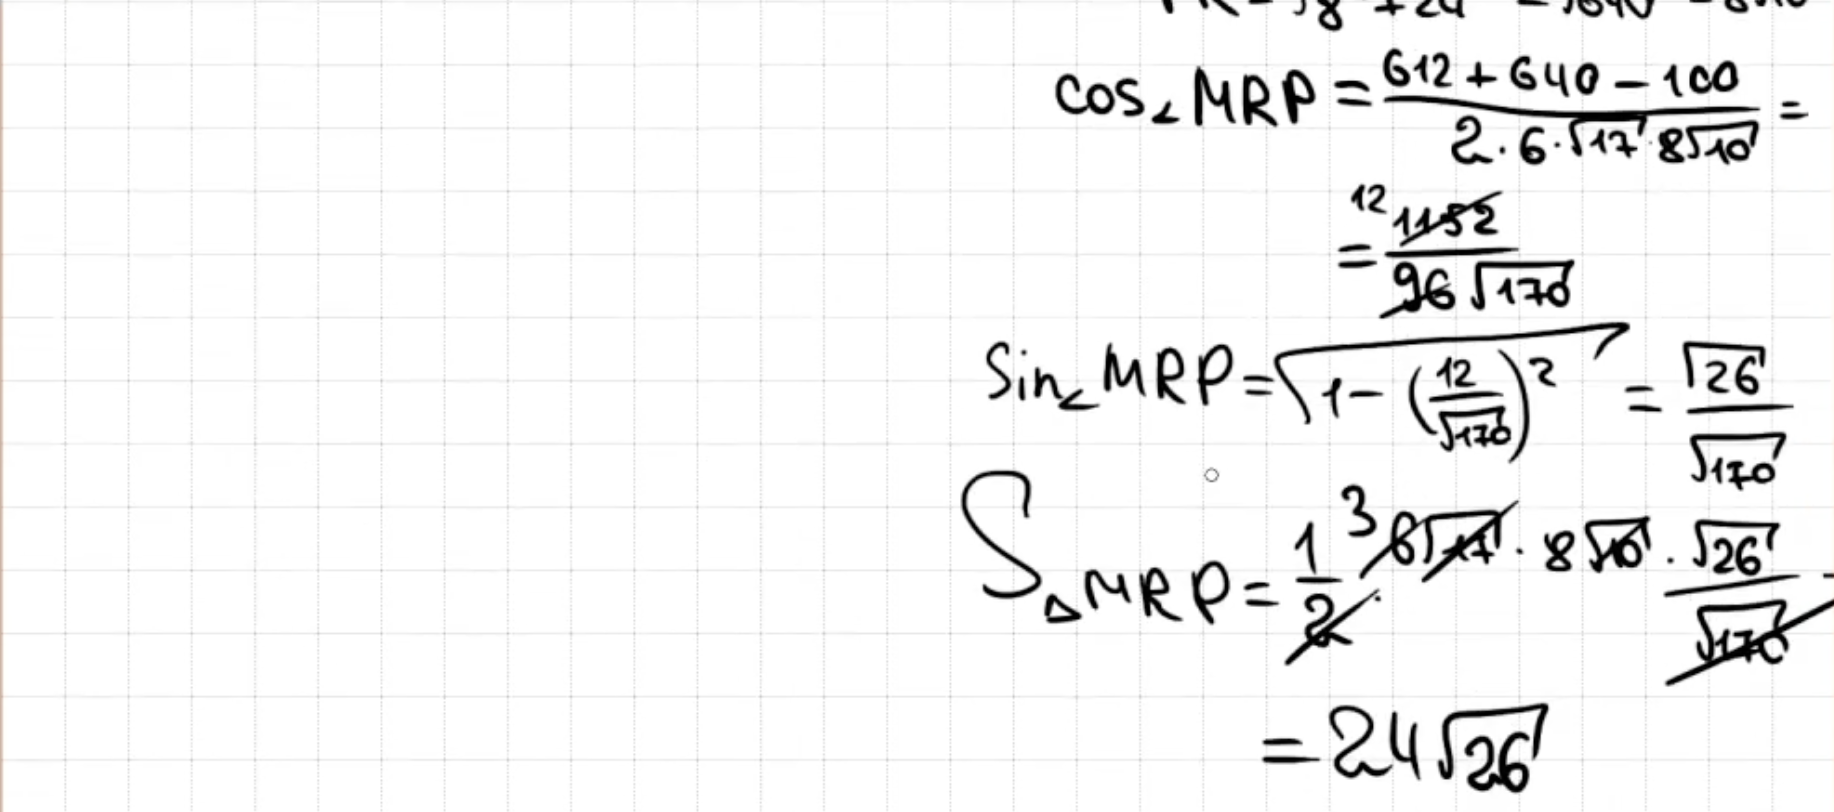 cos∠MRP = (612 + 640 − 100) / (2 · 6 · √17 · 8√10) =
= 12 1152 / (96 √170)
Sin∠MRP = √(1 − (12/√170)²) = √26 / √170
S△MRP = 1/2 · 3 6√17 · 8√10 · √26 / √170
= 24√26